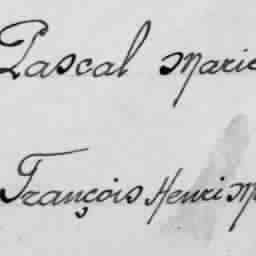 Pascal Marie
François Henri M